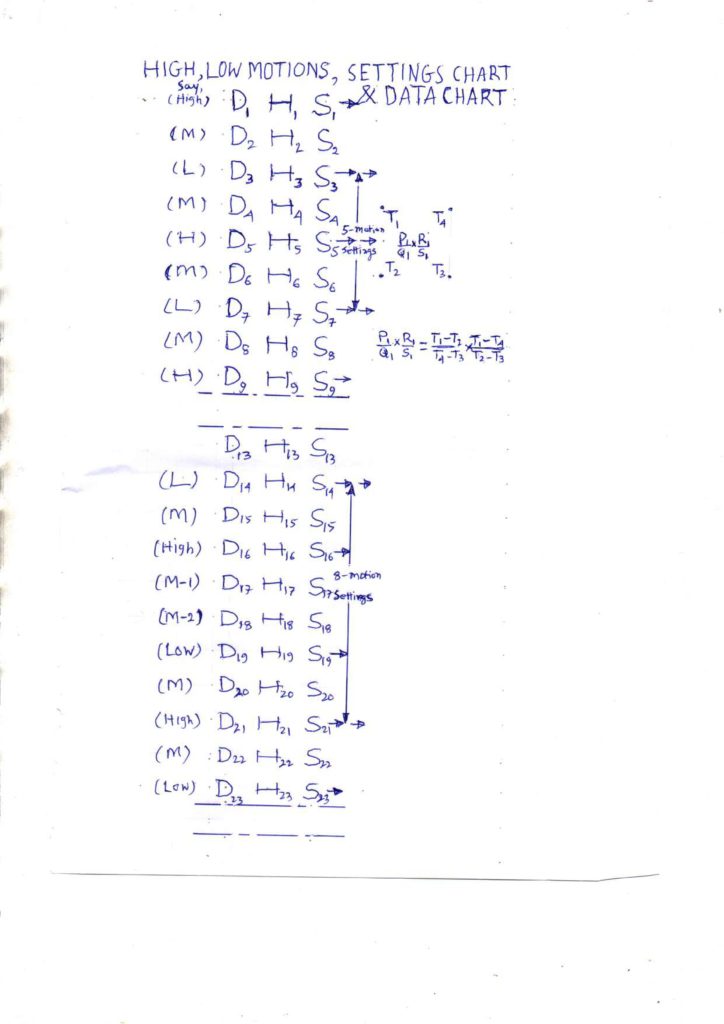 HIGH, LOW MOTIONS, SETTINGS CHART
& DATA CHART
Say,
(High) D1 H1 S1
(M) D2 H2 S2
(L) D3 H3 S3
(M) D4 H4 S4
T1 T4
(H) D5 H5 S5 5-motion settings P1/Q1 x R1/S1
T2 T3
(M) D6 H6 S6
(L) D7 H7 S7
(M) D8 H8 S8 P1/Q1 x R1/S1 = T1-T2/T4-T3 x T1-T4/T2-T3
(H) D9 H9 S9
D13 H13 S13
(L) D14 H14 S14
(M) D15 H15 S15
(High) D16 H16 S16
(M-1) D17 H17 S17 8-motion settings
(M-2) D18 H18 S18
(Low) D19 H19 S19
(M) D20 H20 S20
(High) D21 H21 S21
(M) D22 H22 S22
(Low) D23 H23 S23